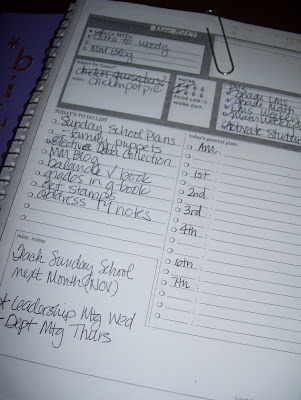 Data to Woody
MM Blog
what's for dinner?
chicken quesadillas?
chicken pot pie
WATER
FOOD LOG
WORK OUT
Grade LMS
Grade
Math Web
Activate Student
TODAY'S TO DO LIST
Sunday School Plans
- paint puppets
Data Collection
MM Blog
balance √ book
grades in g-book
get stamps
address TY notes
today's general plan:
AM
1st
2nd
3rd
4th
6th
7th
misc. notes:
Teach Sunday School
next Month (NOV)
* Leadership Mtg Wed
- Dept Mtg Thurs